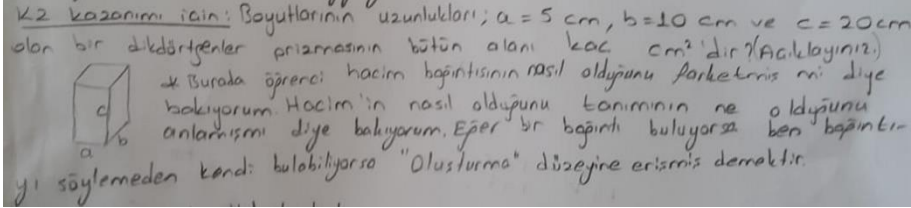 K2 kazanımı için: Boyutlarının uzunlukları; a = 5 cm, b=10 cm ve c = 20cm
olan bir dikdörtgenler prizmasının bütün alanı kaç cm² 'dir? (Açıklayınız.)
* Burada öğrenci hacim bağıntısının nasıl olduğunu farketmiş mi diye
bakıyorum. Hacim'in nasıl olduğunu tanımının ne olduğunu
c
anlamışmı diye bakıyorum. Eğer bir bağıntı buluyorsa ben bağıntı-
a b
yı söylemeden kendi bulabiliyorsa "Oluşturma" düzeyine erişmiş demektir.